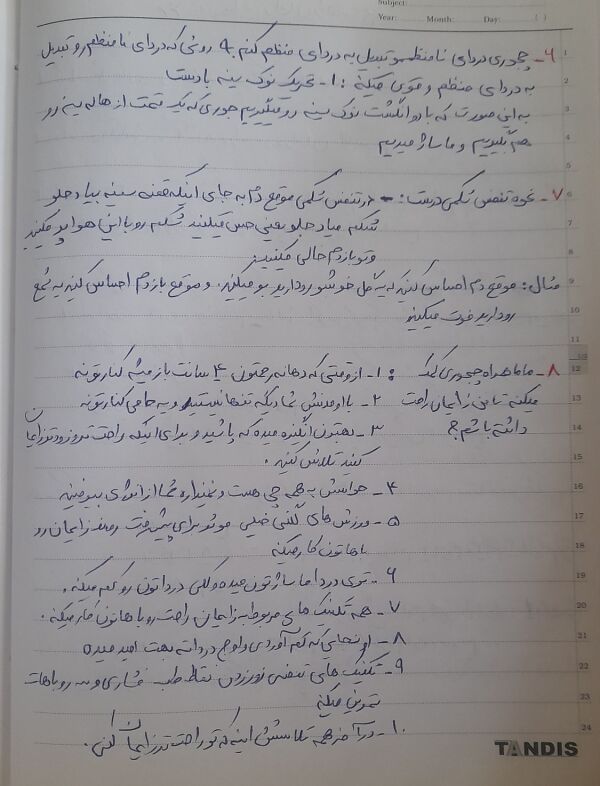 Subject:
Year: Month: Day: ( )
۶_ چجوری دردای نامنظممو تبدیل به دردای منظم کنم؟ روشی که دردای نامنظم رو تبدیل
به دردای منظم و قوی میکنه: ۱- تحریک نوک سینه با دست
به این صورت که با دو انگشت نوک سینه رو میگیریم جوری که یک قسمت از هاله سینه رو
هم بگیریم و ماساژ میدیم
۷_ نحوه تنفس شکمی درست: در تنفس شکمی موقع دم به جای اینکه قفسه سینه بیاد جلو
شکم میاد جلو یعنی حس میکنید شکم رو با این هوا پر میکنید
و تو بازدم خالی میکنید
مثال: موقع دم احساس کنید که یه گل خوشبو رو دارید بو میکنید. و موقع بازدم احساس کنید یه شمع
رو دارید فوت میکنید
۸_ ماما همراه چجوری کمک میکنه تا من زایمان راحت داشته باشم؟
۱- از وقتی که دهانه رحمتون ۴ سانت باز میشه کنارتونه
۲- با اومدنش شما دیگه تنها نیستید و یه حامی کنارتونه
۳- بهتون انگیزه میده که پاشید و برای اینکه راحت تر و زودتر زایمان
کنید تلاش کنید.
۴- حواسش به همه چی هست و نمیذاره شما از انرژی بیوفتید
۵- ورزش های لگنی خیلی موثر برای پیشرفت روند زایمان رو
باهاتون کار میکنه
۶- توی دردا ماساژتون میده و کلی درداتون رو کم میکنه.
۷- همه تکنیک های مربوط به زایمان راحت رو باهاتون کار میکنه.
۸- اونجایی که کم آوردی و اوج درداته بهت امید میده
۹- تکنیک های تنفسی زور زدن نقاط طب فشاری و رو باهات
تمرین میکنه
۱۰- در آخر همه تلاشش اینه که تو راحت تر زایمان کنی.
1
2
3
4
5
6
7
8
9
10
11
12
13
14
15
16
17
18
19
20
21
22
23
24
TANDIS